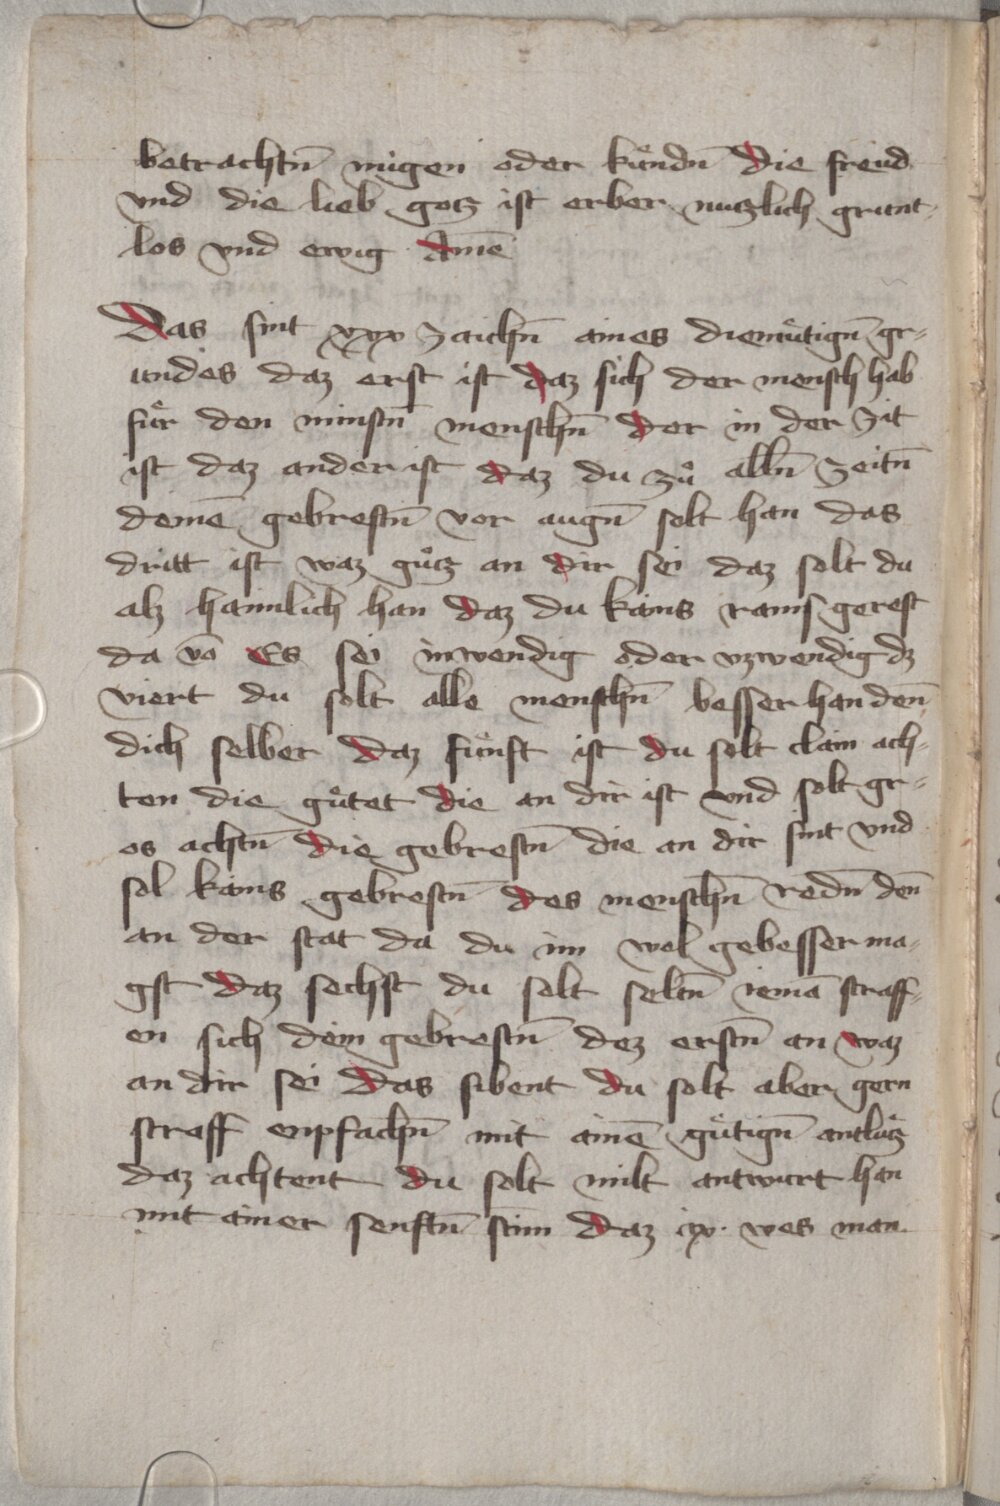 betrachtn̄ mügen oder kündn̄ Die freüd
vnd die lieb gotz ist erber nutzlich grunt-
los vnd ewig Amē
Das sint xxx zaichn̄ aines diemuͤtign̄ gr-
undes daz erst ist daz sich der mensch hab
fuͤr den minstn̄ menschn̄ der in der zit
ist daz ander ist daz du zuͦ alln̄ zeitn̄
deinē gebrestn̄ vor augn̄ solt han das
dritt ist waz guͦtz an dir sei daz solt du
alz haimlich han daz du kains
da vō Es sei inwendig oder vzwendig dz
viert du solt alle menschn̄ besser han den̄
dich selber daz fuͤnft ist du solt clain ach-
ten die guͤtet die an dir ist vnd solt gr-
os achtn̄ die gebrestn̄ die an dir sint vnd
sol kains gebrestn̄ des menschn̄ redn̄ den̄
an der stat da du im wol gebesser ma-
gst daz sechst du solt seltn̄ iemā straff-
en sich dein gebrestn̄ dez erstn̄ an waz
an dir sei Das sibent du solt aber gern
straff enpfachn̄ mit ainē guͤtign̄ antluͤtz
daz achtent du solt milt antwurt han
mit ainer senftn̄ stim daz ix. wes man